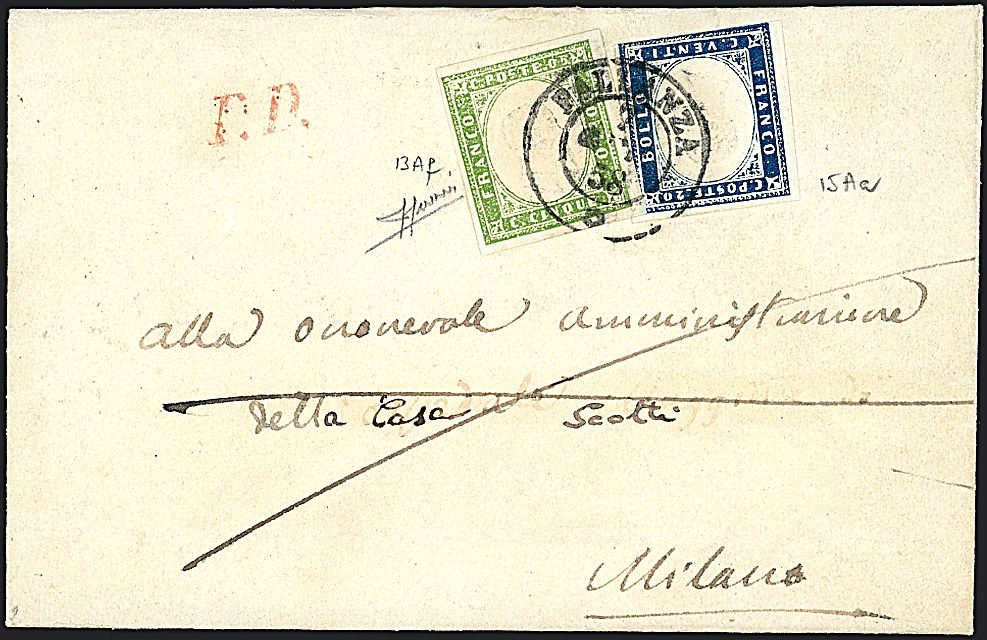 P.D.
C. POSTE. 05
FRANCO
BOLLO
C. CINQUE
C. VENTI
FRANCO
BOLLO
C. POSTE. 20
PALLANZA
13Af.
15Aa
Alla Onorevole Amministrazione
Della Casa Scotti
Milano